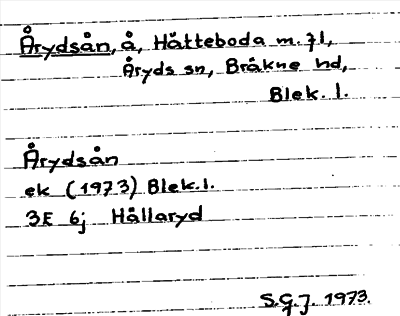 Årydsån, å, Hätteboda m. fl,
Åryds sn, Bräkne hd,
Blek. l.
Årydsån
ek (1973) Blek. l.
3E 6j Hållaryd
S.G.J. 1973.